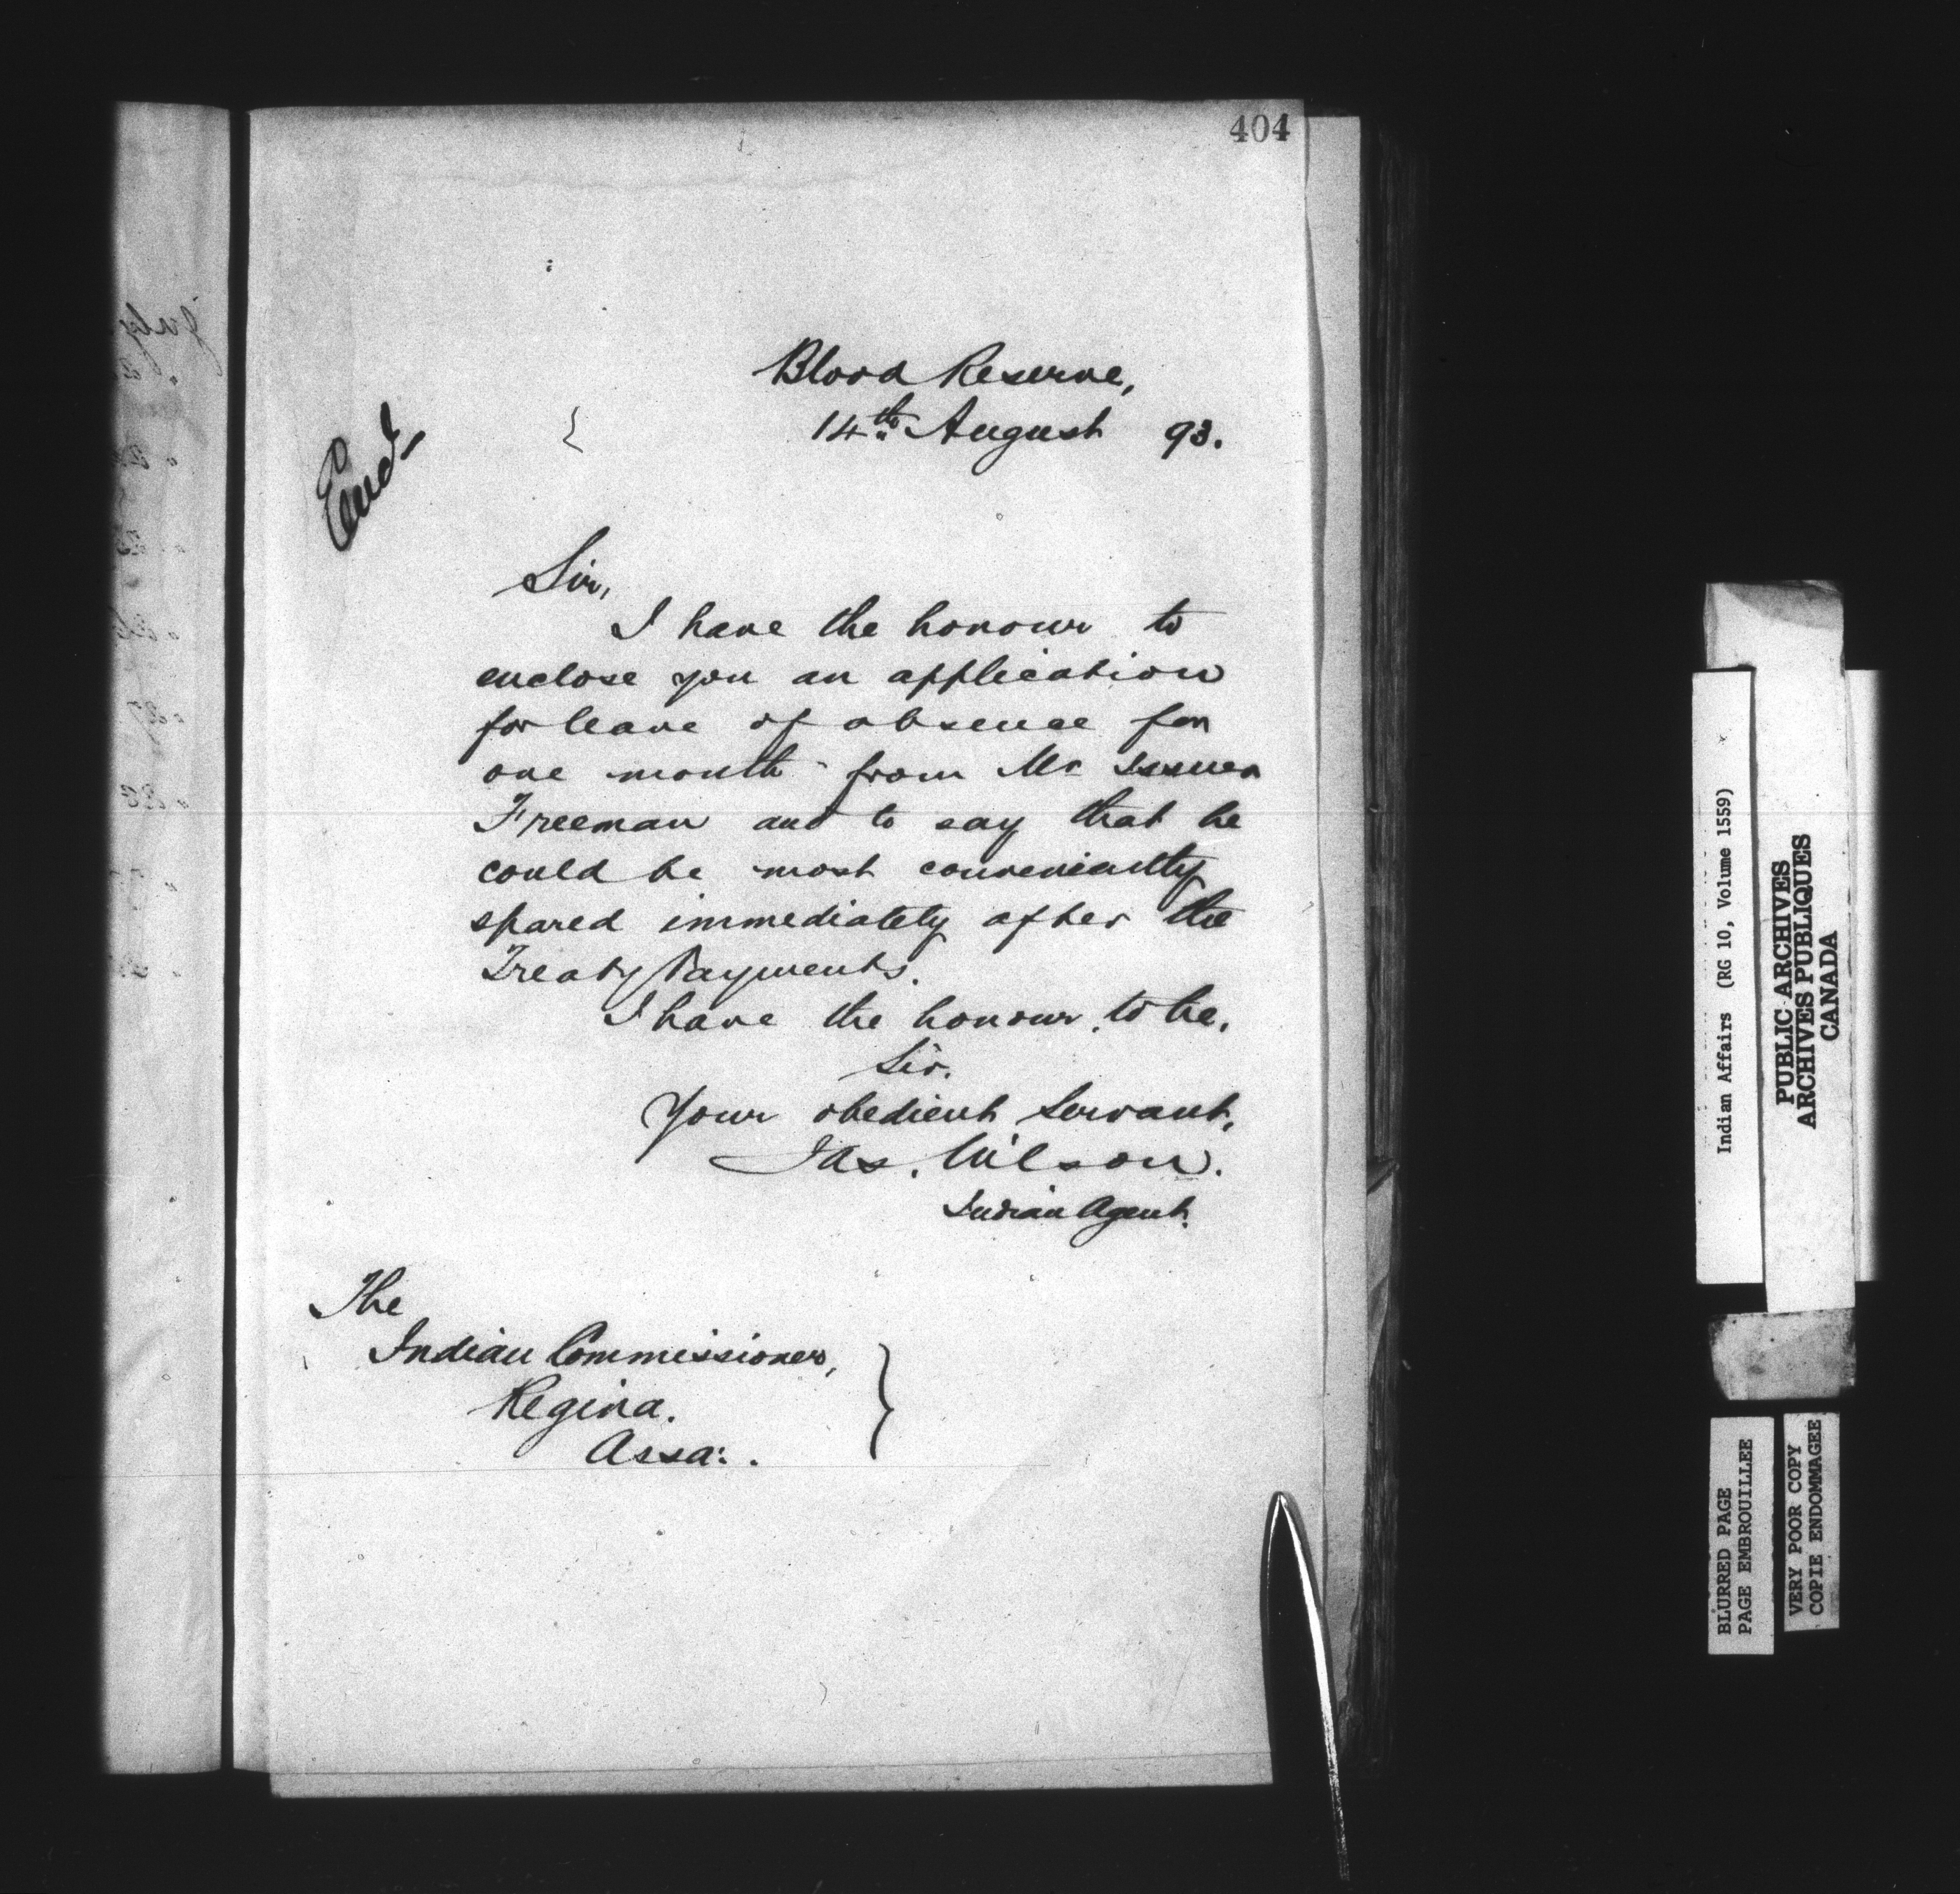 404
Blood Reserve,
14th August 93.
Encl
Sir,
I have the honour to
enclose you an application
for leave of absence for
one month from Mr Issuer
Freeman and to say that he
could be most conveniently
spared immediately after the
Treaty Payments.
I have the honour to be,
Sir.
Your obedient Servant,
Jas. Wilson.
Indian Agent.
The
Indian Commissioner,
Regina.
Assa: .
Indian Affairs (RG 10, Volume 1559)
PUBLIC ARCHIVES
ARCHIVES PUBLIQUES
CANADA
BLURRED PAGE
PAGE EMBROUILLEE
VERY POOR COPY
COPIE ENDOMMAGEE